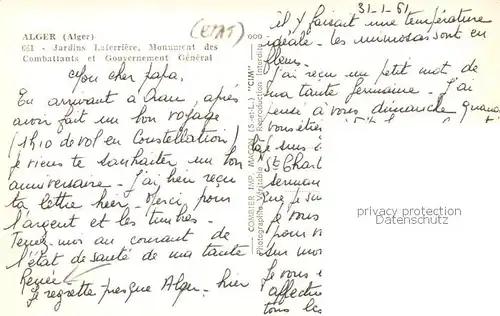 ALGER (Alger)
661 - Jardins Laferrière, Monument des
Combattants et Gouvernement Général
(ETAT)
Mon cher papa,
En arrivant à Oran, après
avoir fait un bon voyage
(1h10 de vol en Constellation)
je viens te souhaiter un bon
anniversaire - J'ai bien reçu
ta lettre hier - Merci pour
l'argent et les timbres -
Tenez-moi au courant de
l'état de santé de ma tante
Renée -
Je regrette presque Alger - hier
COMBIER IMP. MACON (S.-et-L.) "CIM"
Photographie Véritable - Reproduction Interdite
31-1-61
il y faisait une température
idéale - les mimosas sont en
fleurs -
J'ai reçu un petit mot de
ma tante Germaine - J'ai
pensé à vous dimanche quand
vous étie
je suis
St Charl
serman
que je su
je vous
pour v
sur mo
Je vous e
affectu
tous les
privacy protection
Datenschutz